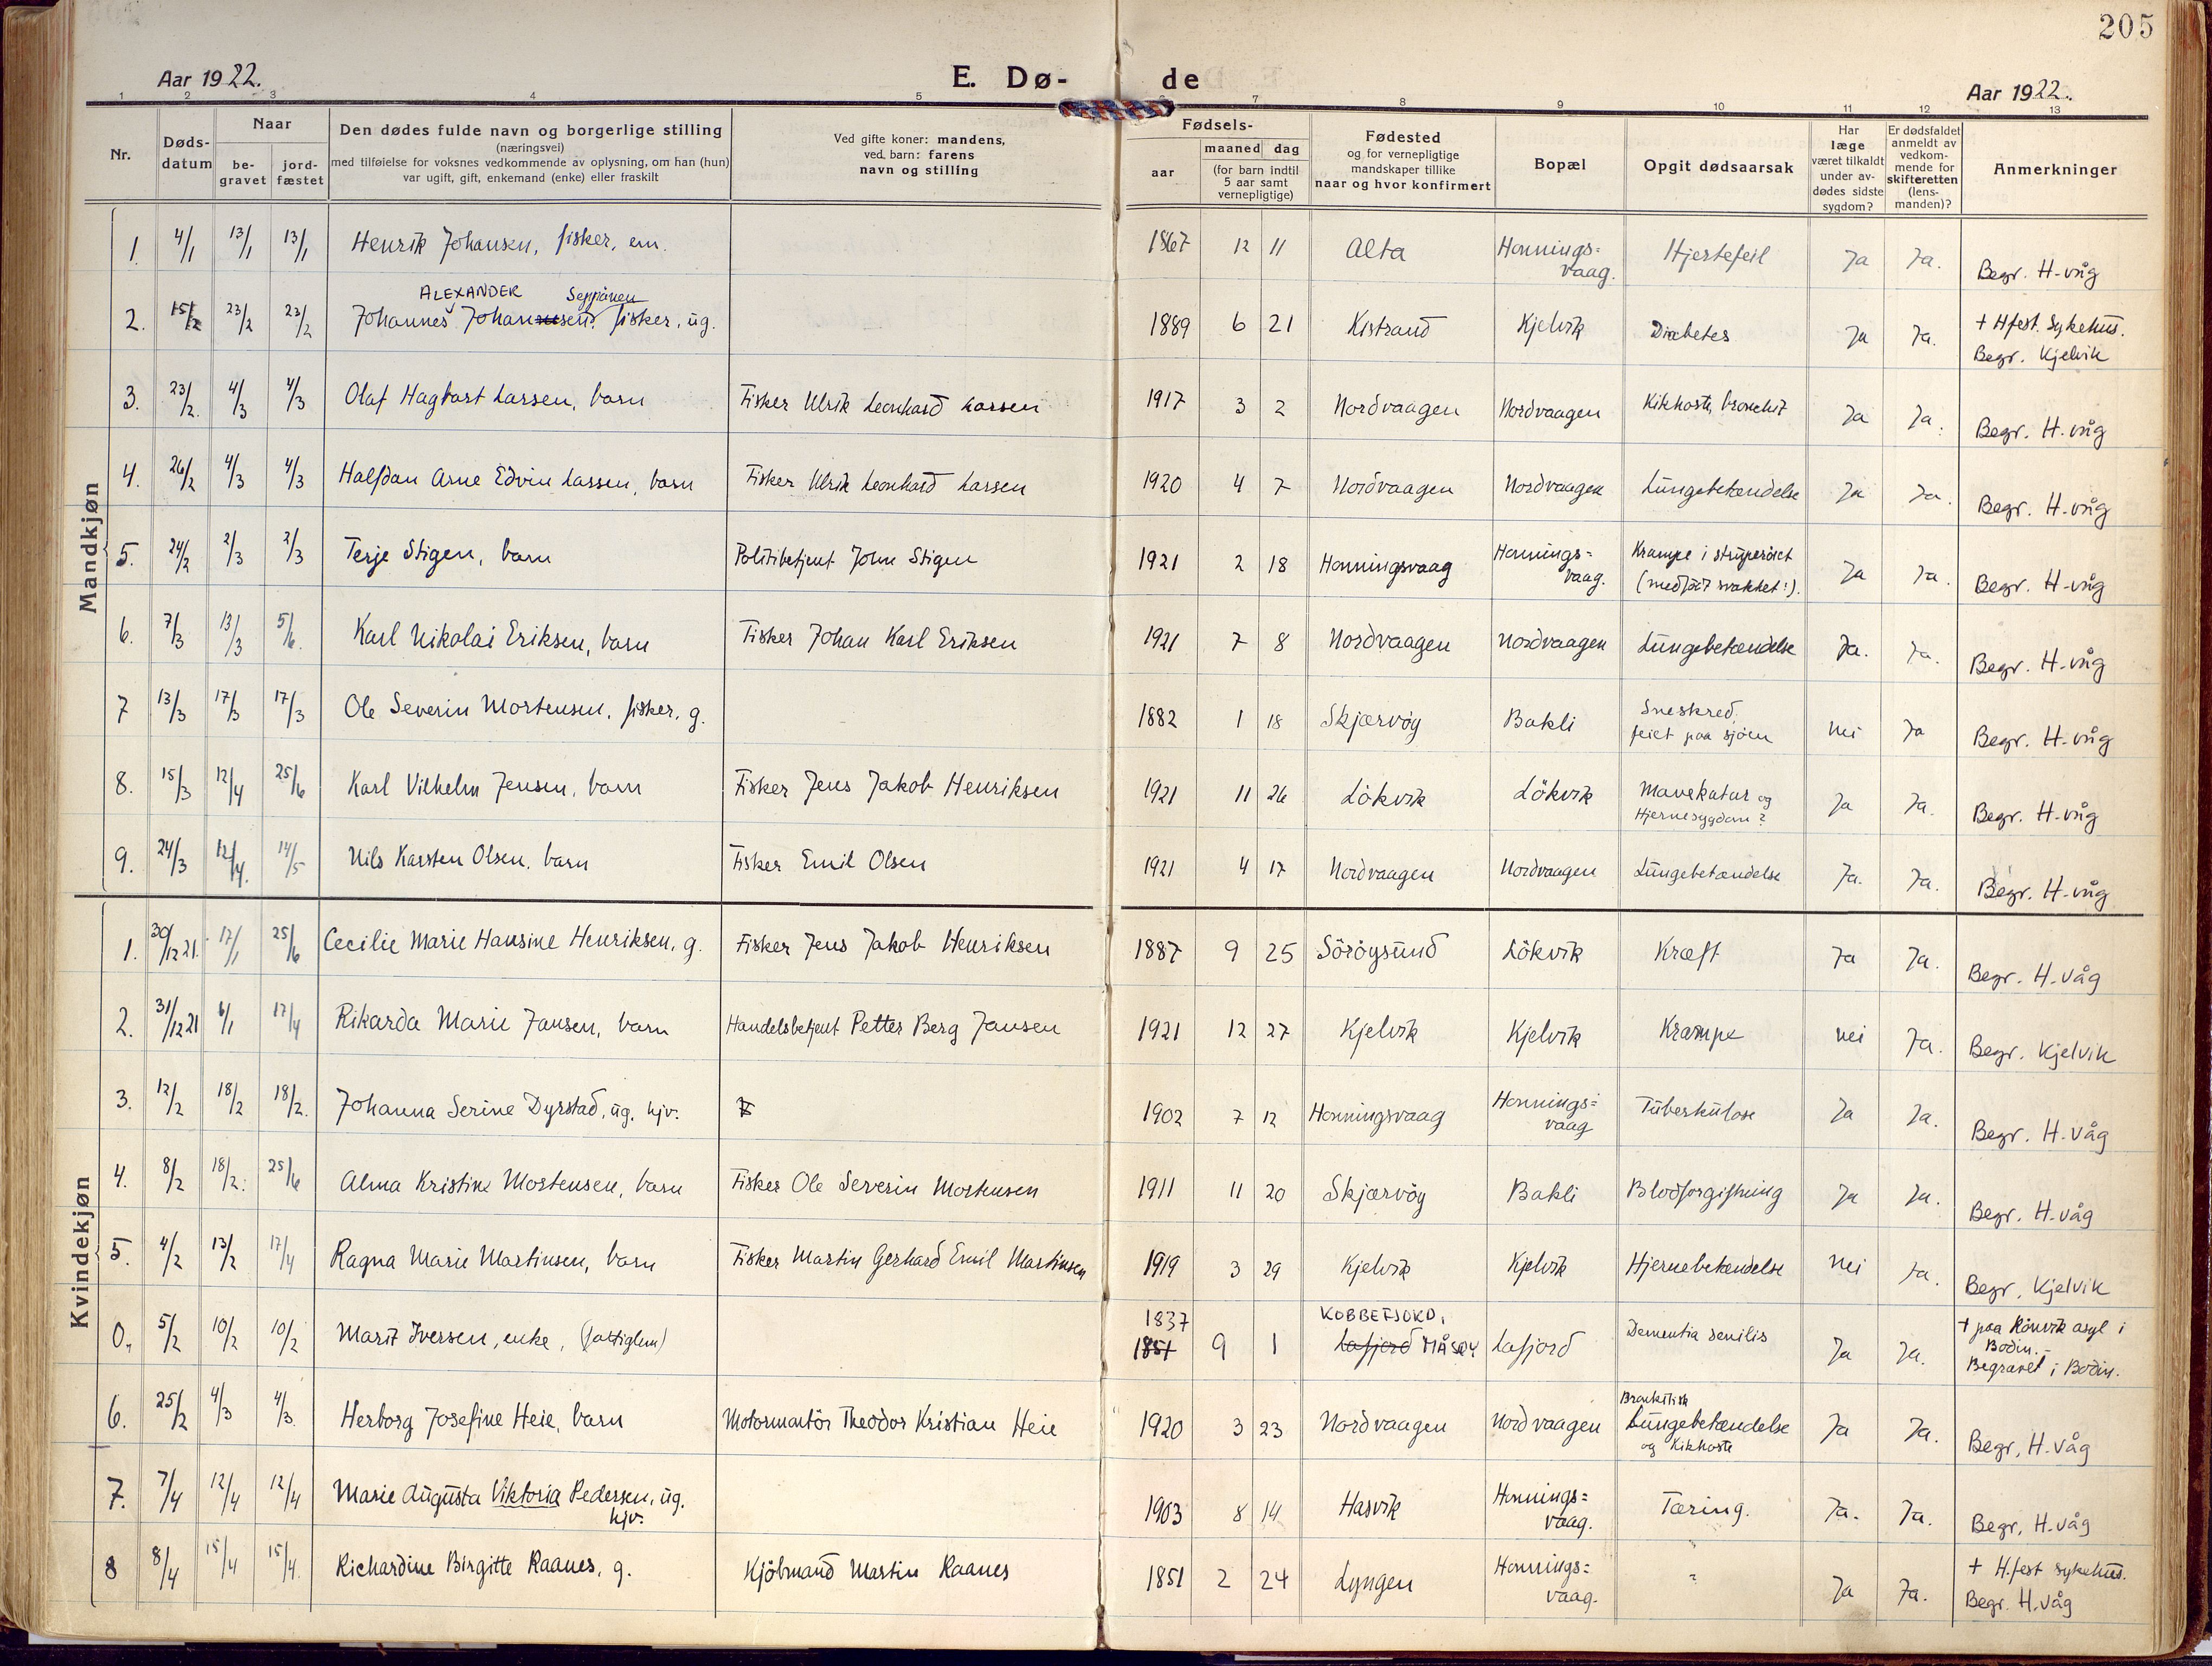 205
Aar 1922.
E. Dø-
de
Aar 1922.
1 2 3 4 5 7 8 9 10 11 12 13
Nr.
Døds-
datum
Naar
be-
gravet
jord-
fæstet
Den dødes fulde navn og borgerlige stilling
(næringsvei)
med tilføielse for voksnes vedkommende av oplysning, om han (hun)
var ugift, gift, enkemand (enke) eller fraskilt
Ved gifte koner: mandens,
ved barn: farens
navn og stilling
Fødsels-
aar
maaned dag
(for barn indtil
5 aar samt
vernepligtige)
Fødested
og for vernepligtige
mandskaper tillike
naar og hvor konfirmert
Bopæl
Opgit dødsaarsak
Har
læge
været tilkaldt
under av-
dødes sidste
sygdom?
Er dødsfaldet
anmeldt av
vedkom-
mende for
skifteretten
(lens-
manden)?
Anmerkninger
Mandkjøn
1. 4/1 13/1 13/1 Henrik Johansen, fisker, em. 1867 12 11 Alta Honnings=
vaag. Hjertefeil Ja Ja. Begr. H-våg
ALEXANDER Seppänen
2. 15/2 23/2 23/2 Johannes Johannesen. fisker, ug. 1889 6 21 Kistrand Kjelvik Diabetes Ja Ja. + Hfest. Sykehus.
Begr. Kjelvik
3. 23/2. 4/3 4/3 Olaf Hagbart Larsen, barn Fisker Ulrik Leonhard Larsen 1917 3 2 Nordvaagen Nordvaagen Kikhoste, bronchit Ja Ja. Begr. H.våg
4. 26/2 4/3 4/3 Halfdan Arne Edvin Larsen, barn Fisker Ulrik Leonhard Larsen 1920 4 7 Nordvaagen Nordvaagen Lungebetændelse Ja Ja. Begr. H-våg
5. 24/2 2/3 2/3 Terje Stigen, barn Politibetjent John Stigen 1921 2 18 Honningsvaag Honnings=
vaag. Krampe i struperöret
(medfödt svakhet!). Ja Ja. Begr. H-våg
6. 7/3 13/3 5/6. Karl Nikolai Eriksen, barn Fisker Johan Karl Eriksen 1921 7 8 Nordvaagen Nordvaagen Lungebetændelse Ja. Ja. Begr. H-våg
7 13/3 17/3 17/3 Ole Severin Mortensen, fisker, g. 1882 1 18 Skjærvöy Bakli Sneskred,
feiet paa sjöen nei Ja Begr. H-våg
8. 15/3 12/4 25/6 Karl Vilhelm Jensen, barn Fisker Jens Jakob Henriksen 1921 11 26 Lökvik Lökvik Mavekatar og
Hjernesygdom? Ja Ja. Begr. H-våg
9. 24/3 12/4. 14/5 Nils Karsten Olsen, barn Fisker Emil Olsen 1921 4 17 Nordvaagen Nordvaagen Lungebetændelse Ja. Ja. Begr. H-våg
Kvindekjøn
1. 30/12 21. 17/1 25/6 Cecilie Marie Hansine Henriksen, g. Fisker Jens Jakob Henriksen 1887 9 25 Söröysund Lökvik Kræft Ja Ja. Begr. H.våg
2. 31/12 21 6/1 17/4 Rikarda Marie Jansen, barn Handelsbetjent Petter Berg Jansen 1921 12 27 Kjelvik Kjelvik Krampe nei Ja. Begr. Kjelvik
3. 12/2 18/2 18/2. Johanna Serine Dyrstad, ug. hjv. 1902 7 12 Honningsvaag Honnings=
vaag Tuberkulose Ja Ja. Begr. H.våg
4. 8/2 18/2. 25/6 Alma Kristine Mortensen, barn Fisker Ole Severin Mortensen 1911 11 20 Skjærvöy Bakli Blodforgiftning Ja Ja. Begr. H-våg
5. 4/2 13/2 17/4 Ragna Marie Martinsen, barn Fisker Martin Gerhard Emil Martinsen 1919 3 29 Kjelvik Kjelvik Hjernebetændelse Nei Ja. Begr. Kjelvik
1837 KOBBEFJORD,
0. 5/2 10/2 10/2 Marit Iversen, enke, (fattiglem) 1851 9 1 Lafjord MÅSØY Lafjord Dementia senilis Ja Ja. + paa Rönvik asyl i
Bodin.-
Begravet i Bodin.
6. 25/2 4/3 4/3. Herborg Josefine Heie, barn Motormontör Theodor Kristian Heie 1920 3 23 Nordvaagen Nordvaagen Bronkitisk
Lungebetændelse
og Kikhoste Ja Ja. Begr, H.våg
7. 7/4 12/4 12/4 Marie Augusta Viktoria Pedersen, ug.
hjv. 1903 8 14 Hasvik Honnings=
vaag. Tæring. Ja. Ja. Begr, H.våg
8 8/4 15/4 15/4. Richardine Birgitte Raanes, g. Kjöbmand Martin Raanes 1851 2 24 Lyngen Honnings=
vaag. ? Ja Ja. + H.fest sykehus.
Begr. H.våg